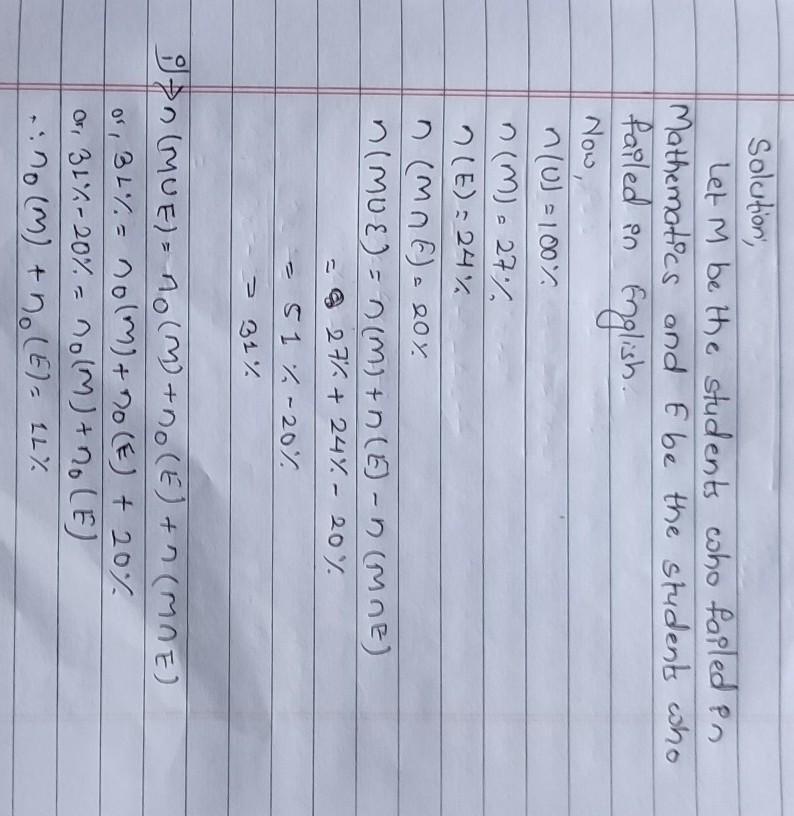 Solution,
Let M be the students who failed in
Mathematics and E be the students who
failed in English.
Now,
n(U) = 100%
n(M) = 27%
n(E) = 24%
n(M∩E) = 20%
n(M∪E) = n(M) + n(E) - n(M∩E)
= 27% + 24% - 20%
= 51% - 20%
= 31%
i) → n(M∪E) = n₀(M) + n₀(E) + n(M∩E)
or, 31% = n₀(M) + n₀(E) + 20%
or, 31% - 20% = n₀(M) + n₀(E)
∴ n₀(M) + n₀(E) = 11%